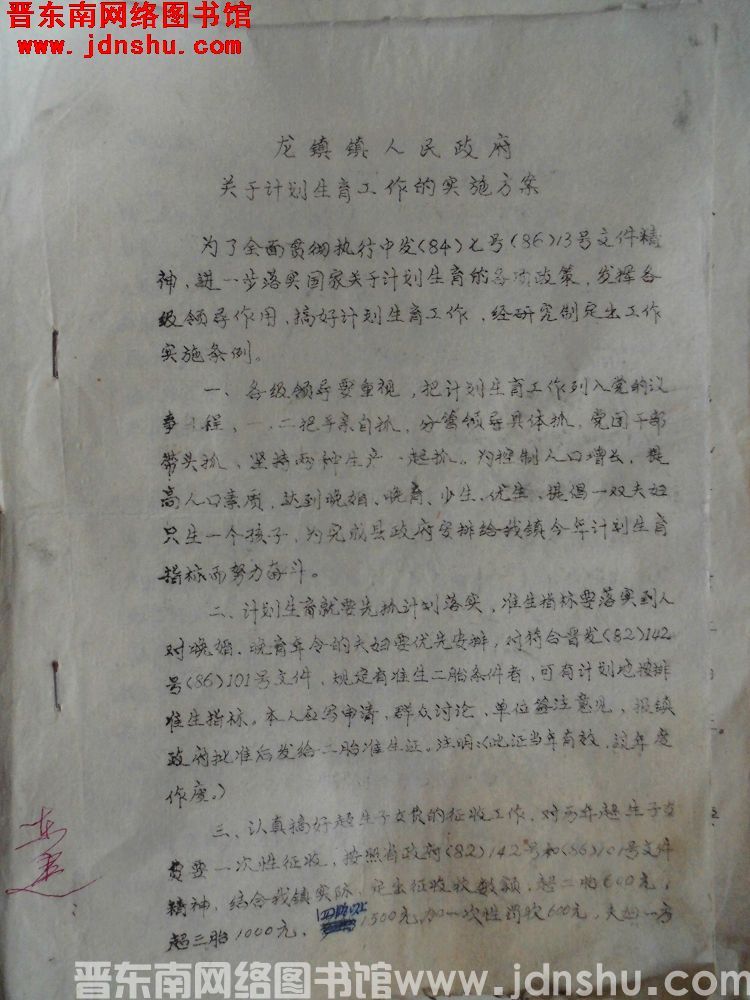 晋东南网络图书馆
www.jdnshu.com
龙镇镇人民政府
关于计划生育工作的实施方案
为了全面贯彻执行中发(84)七号(86)13号文件精
神,进一步落实国家关于计划生育的各项政策,发挥各
级领导作用,搞好计划生育工作,经研究制定出工作
实施条例。
一、各级领导要重视,把计划生育工作列入党的议
事日程,一、二把手亲自抓,分管领导具体抓,党团干部
带头抓,坚持两种生产一起抓。为控制人口增长,提
高人口素质,达到晚婚、晚育、少生、优生、提倡一双夫妇
只生一个孩子,为完成县政府安排给我镇今年计划生育
指标而努力奋斗。
二、计划生育就要先抓计划落实,准生指标要落实到人
对晚婚、晚育年令的夫妇要优先安排,对符合晋发(82)142
号(86)101号文件,规定有准生二胎条件者,可有计划地按排
准生指标。本人应写申请,群众讨论,单位签注意见,报镇
政府批准后发给二胎准生证。注明:(此证当年有效,跨年度
作废。)
三、认真搞好超生子女费的征收工作,对历年超生子女
费要一次性征收,按照省政府(82)142号和(86)101号文件
精神,结合我镇实际,定出征收数额,超二胎600元,
超三胎1000元,四胎以上1500元,加一次性罚款600元,夫妇一方
晋东南网络图书馆www.jdnshu.com